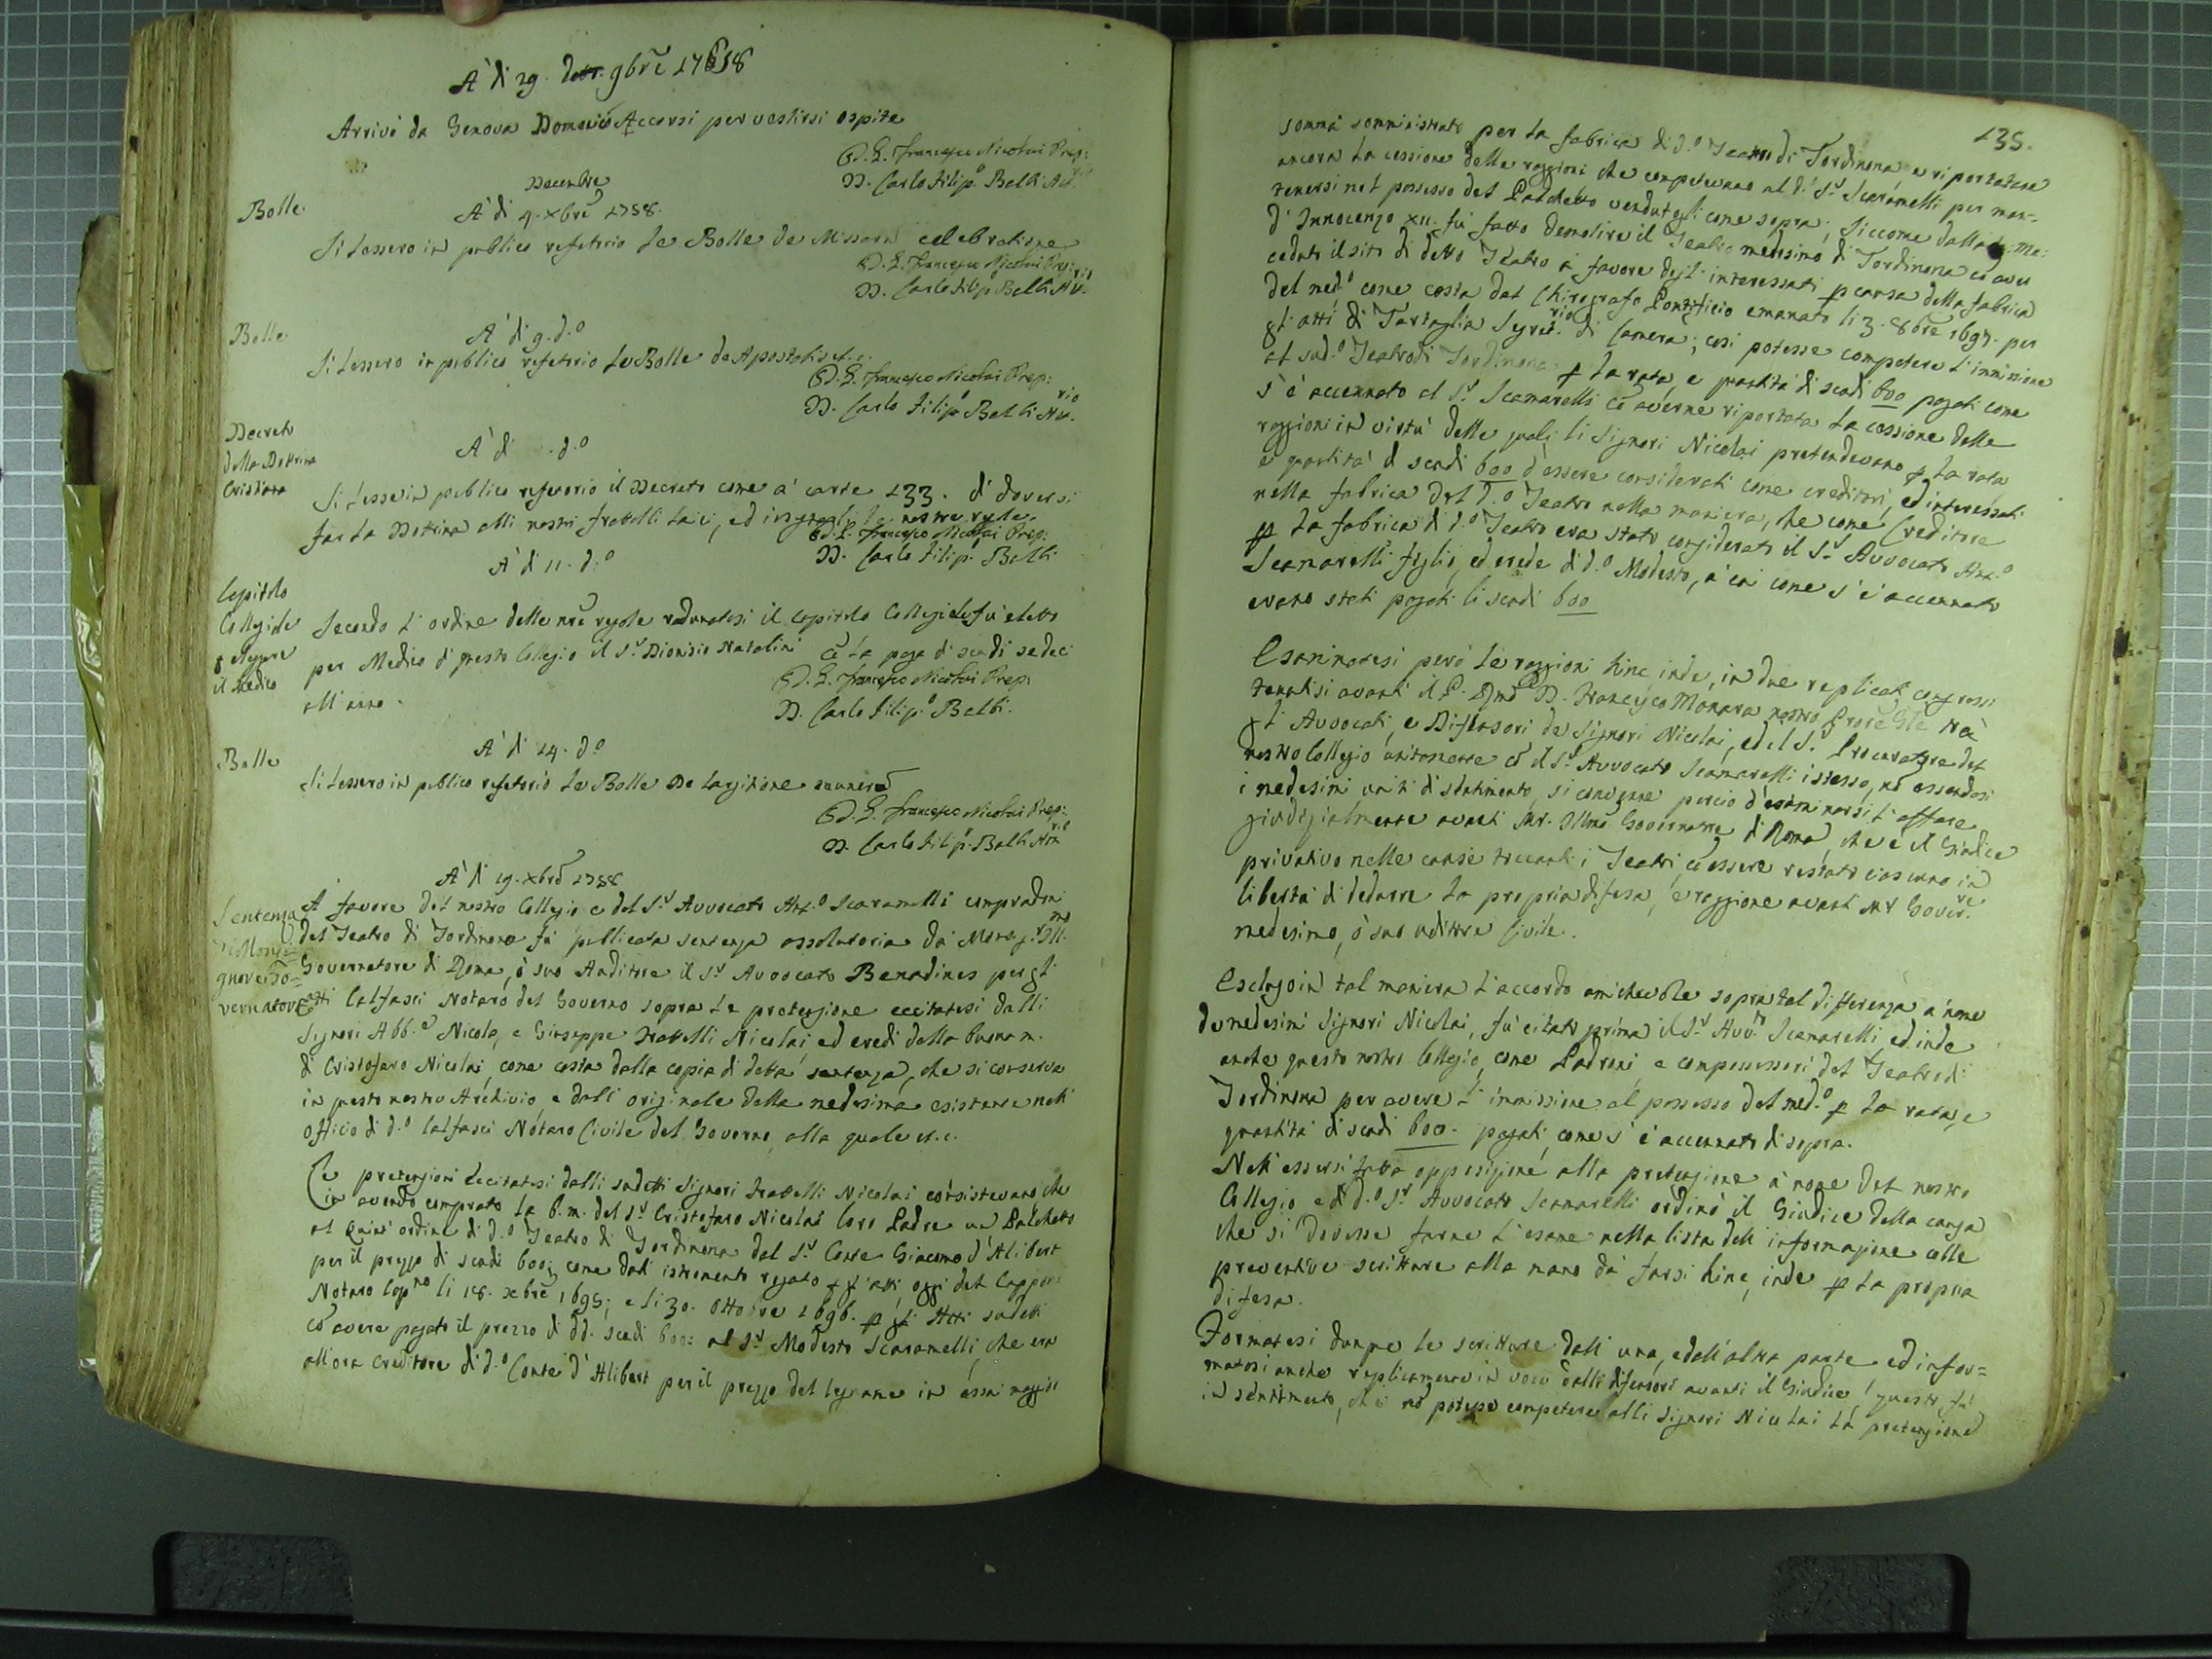 A' dì 29. 9bre 1718
Arrivò da Genova Domenico Accorsi per vestirsi ospite
D. G. Francesco Nicolai Prep:
D. Carlo Filip.o Belli
Decembre
Bolle.
A' dì 4. Xbre 1718.
Si lessero in publico refetorio le Bolle de Missarum celebratione
D. G. Francesco Nicolai Prep:
D. Carlo Filip.o Belli
Bolle.
A' dì 9. d.o
Si lessero in publico refetorio le Bolle de Apostatis et.c.
D. G. Francesco Nicolai Prep:
D. Carlo Filip.o Belli
Decreto
della Dottrina
Cristiana
A' dì d.o
Si lesse in publico refetorio il Decreto come a' carte 133. di doversi
far la Dottrina alli nostri fratelli laici, ed nostre regole
D. G. Francesco Nicolai Prep:
D. Carlo Filip.o Belli
A' dì 11. d.o
Capitolo
Collegiale
p elegere
il Medico
Secondo l' ordine delle nre regole radunatosi il capitolo Collegiale fù eletto
per Medico di questo Collegio il S.r Dionisio Natalini cō la paga di scudi sedeci
all' anno.
D. G. Francesco Nicolai Prep:
D. Carlo Filip.o Belli.
Bolle
A' dì 14. d.o
Si lessero in publico refetorio le Bolle De largitione munerū
D. G. Francesco Nicolai Prep:
D. Carlo Filip.o Belli
A' dì 19. Xbre 1718
Sentenza
gnore Go=
vernatore
A' favore del nostro Collegio e del S.r Avvocato Ant.o Scaramelli compadroni
del Teatro di Tordinona fù publicata sentenza assolutoria da Monsig.r Ill.mo
Governatore di Roma, ò suo Auditore il S.r Avvocato Benadines per gl'
atti Calfasci Notaro del Governo sopra la pretenzione eccitatasi dalli
Signori Abb.e Nicola, e Giuseppe Fratelli Nicolai ed eredi della buona m.
di Cristofaro Nicolai, come costa dalla copia di detta sentenza, che si conserva
in questo nostro Archivio e dall' originale della medesima esistente nell'
officio di d.o Calfasci Notaro Civile del Governo, alla quale et.c.
Le pretenzioni eccitatesi dalli sudetti Signori Fratelli Nicolai consistevano che
in avendo comprato la b. m. del S.r Cristofaro Nicolai loro Padre un Palchetto
al ordine di d.o Teatro di Tordinona dal S.r Conte Giacomo d' Alibert
per il prezzo di scudi 600; come dall' istromento rogato p gl' atti, oggi del
Notaro Cap.no li 18. Xbre 1695; e li 30. Ottobre 1696. p gl' Atti sudetti
cō avere pagato il prezzo di dd. scudi 600: al S.r Modesto Scaramelli, che era
all' ora Creditore di d.o Conte d' Alibert per il prezzo del legname in assai maggior
135.
somma somministrato per la fabrica di d.o Teatro di Tordinona e riportatane
ancora la cessione delle raggioni che competevano al d.o S.r Scaramelli per man-
tenersi nel possesso del Palchetto vendutogli come sopra; siccome dalla Me:
d' Innocenzo XII. fù fatto demolire il Teatro medesimo di Tordinona cō aver
ceduto il sito di detto Teatro à favore degl' interessati p causa della fabrica
del med.o come costa dal Chirografo Pontificio emanato li 3. 8bre 1697. per
gl' atti di Tartaglia Segret.rio di Camera; così potesse competere l' immissione
al sud.o Teatro di Tordinona p la rata, e quantità di scudi 600 pagati come
s' è accennato al S.r Scamarelli cō averne riportata la cessione delle
raggioni in virtù delle quali li Signori Nicolai pretendevano p la rata
e quantità di scudi 600 d' essere considerati come creditori, ed interessati
nella fabrica del d.o Teatro nella maniera, che come Creditore
p la fabrica di d.o Teatro era stato considerato il S.r Avvocato Ant.o
Scamarelli figlio, ed erede di d.o Modesto, à cui come s' è accennato
erano stati pagati li scudi 600
Esaminatesi però le raggioni hinc inde, in due replicati congressi
tenutisi avanti il P. D. Francesco Monara nostro trà
gl' Avvocati, e Difensori de Signori Nicolai, ed il S.r Procuratore del
nostro Collegio unitamente cō il S.r Avvocato Scamarelli istesso, nō essendosi
i medesimi uniti di sentimento, si convenne perciò d' esaminarsi l' affare
giudizialmente avanti Mr. Illmo Governatore di Roma, che è il Giudice
privativo nelle cause toccanti i Teatri, cō essere restato ciascuno in
libertà di dedurre la propria difesa, e raggione avanti Mr Gover.re
medesimo, ò suo uditore Civile.
Escluso in tal maniera l' accordo amichevole sopra tal differenza à nome
de medesimi Signori Nicolai, fù citato prima il S.r Avv.to Scamarelli, ed inde
anche questo nostro Collegio, come Padroni e compossessori del Teatro di
Tordinona per avere l' immissione al possesso del med.o p la rata, e
quantità di scudi 600. pagati, come s' è accennato di sopra.
Nell' essersi fatta opposizione alla pretenzione à nome del nostro
Collegio e di d.o S.r Avvocato Scamarelli ordinò il Giudice della causa
che si dovesse farne l' esame nella lista dell' informazione colle
preventive scritture alla mano da farsi hinc, inde p la propria
difesa.
Formatesi dunque le scritture dall' una, e dall' altra parte ed infor=
matosi anche replicamente in voce dalli difensori avanti il Giudice questo fù
in sentimento, che nō potesse competere alli Signori Nicolai la pretenzione